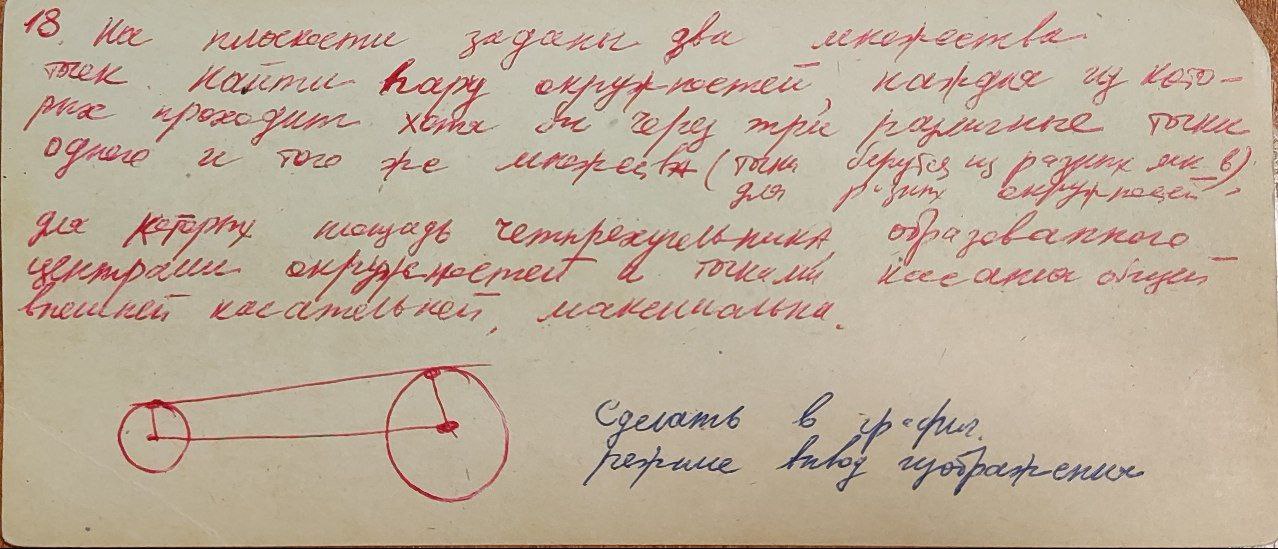 18. На плоскости заданы два множества
точек найти пару окружностей, каждая из кото-
рых проходит хотя бы через три различные точки
одного и того же множества (точки берутся из разных мн-в)
для разных окружностей,
для которых площадь четырехугольника, образованного
центрами окружностей и точками касания общей
внешней касательной, максимальна.
Сделать в график.
режиме вывод изображения